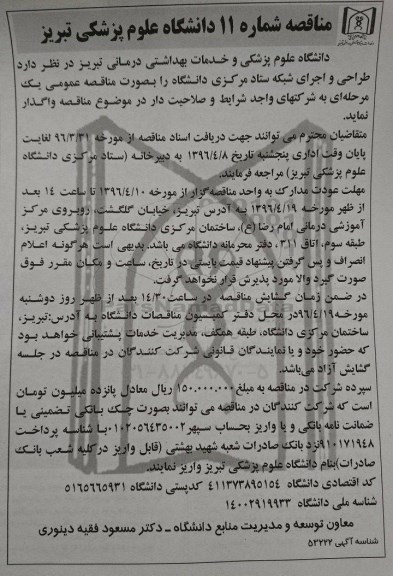 مناقصه شماره ۱۱ دانشگاه علوم پزشکی تبریز
دانشگاه علوم پزشکی و خدمات بهداشتی درمانی تبریز در نظر دارد
طراحی و اجرای شبکه ستاد مرکزی دانشگاه را بصورت مناقصه عمومی یک
مرحله‌ای به شرکتهای واجد شرایط و صلاحیت دار در موضوع مناقصه واگذار
نماید.
متقاضیان محترم می توانند جهت دریافت اسناد مناقصه از مورخه ۹۶/۳/۳۱ لغایت
پایان وقت اداری پنجشنبه تاریخ ۱۳۹۶/۴/۸ به دبیرخانه (ستاد مرکزی دانشگاه
علوم پزشکی تبریز) مراجعه فرمایند.
مهلت عودت مدارک به واحد مناقصه گزار از مورخه ۱۳۹۶/۴/۱۰ تا ساعت ۱۴ بعد
از ظهر مورخه ۱۳۹۶/۴/۱۹ به آدرس تبریز، خیابان گلگشت، روبروی مرکز
آموزشی درمانی امام رضا (ع)، ساختمان مرکزی دانشگاه علوم پزشکی تبریز،
طبقه سوم، اتاق ۳۱۱، دفتر محرمانه دانشگاه می باشد. بدیهی است هرگونه اعلام
انصراف و پس گرفتن پیشنهاد قیمت بایستی در تاریخ، ساعت و مکان مقرر فوق
صورت گیرد والا مورد پذیرش قرار نخواهد گرفت.
در ضمن زمان گشایش مناقصه در ساعت ۱۴/۳۰ بعد از ظهر روز دوشنبه
مورخه ۹۶/۴/۱۹ در محل دفتر کمیسیون مناقصات دانشگاه به آدرس: تبریز،
ساختمان مرکزی دانشگاه، طبقه همکف، مدیریت خدمات پشتیبانی خواهد بود
که حضور خود و یا نمایندگان قانونی شرکت کنندگان در مناقصه در جلسه
گشایش آزاد می‌باشد.
سپرده شرکت در مناقصه به مبلغ ۱۵۰.۰۰۰.۰۰۰ ریال معادل پانزده میلیون تومان
است که شرکت کنندگان در مناقصه می توانند بصورت چک بانکی تضمینی یا
ضمانت نامه بانکی و یا واریز بحساب سپهر ۰۱۰۲۰۵۶۴۳۵۰۰۲ با شناسه پرداخت
۹۱۰۱۷۱۹۴۸ نزد بانک صادرات شعبه شهید بهشتی (قابل واریز در کلیه شعب بانک
صادرات) بنام دانشگاه علوم پزشکی تبریز واریز نمایند.
کد اقتصادی دانشگاه ۴۱۱۳۷۳۸۹۵۱۵۴ کدپستی دانشگاه ۵۱۶۵۶۶۵۹۳۱
شناسه ملی دانشگاه ۱۴۰۰۲۹۱۹۹۳۳
معاون توسعه و مدیریت منابع دانشگاه ــ دکتر مسعود فقیه دینوری
شناسه آگهی ۵۳۲۲۲